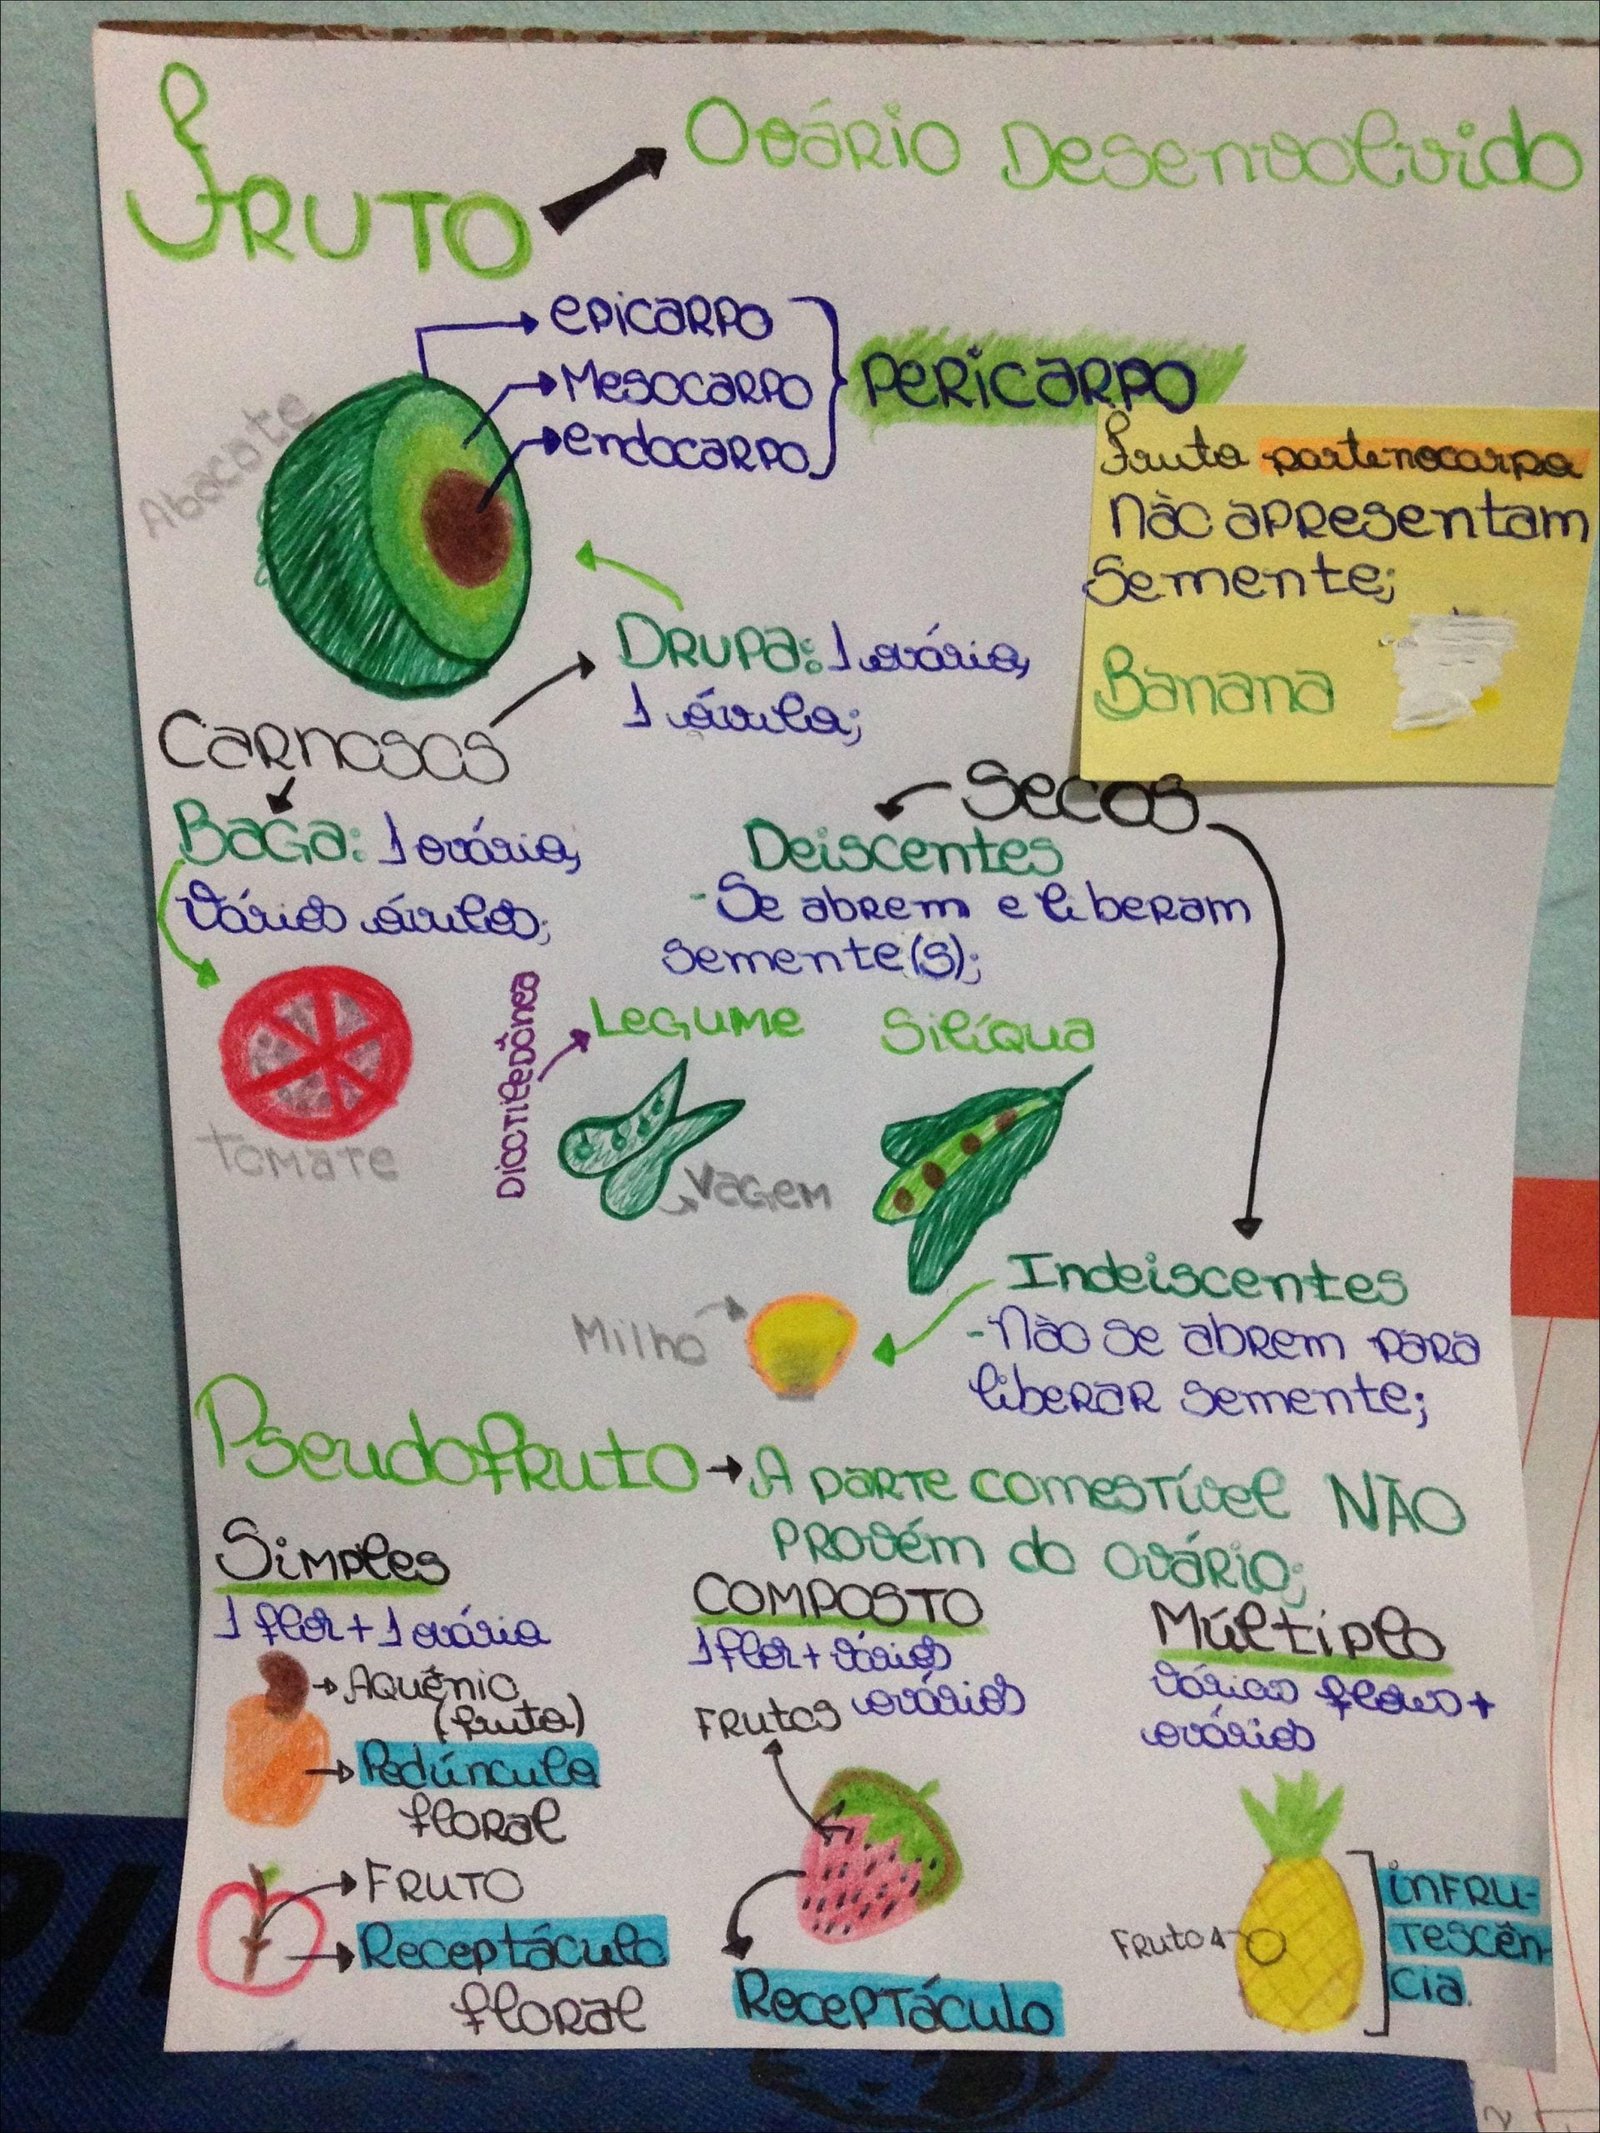 Fruto
Ovário Desenvolvido
epicarpo
Mesocarpo
endocarpo
Pericarpo
Abacate
Fruto partenocarpo
Não apresentam
Semente;
Banana
Carnosos
Drupa: 1 ovário,
1 óvulo;
Baga: 1 ovário,
vários óvulos;
Tomate
Secos
Deiscentes
- Se abrem e liberam
semente(s);
Dicotiledônea
Legume
Vagem
Silíqua
Indeiscentes
- Não se abrem para
liberar semente;
Milho
Pseudofruto
A parte comestível NÃO
provém do ovário;
Simples
1 flor + 1 ovário
Aquênio
(fruto)
Pedúnculo
floral
Fruto
Receptáculo
floral
Composto
1 flor + vários
ovários
Frutos
Receptáculo
Múltiplo
várias flores +
ovários
Fruto
infru-
tescên-
cia.